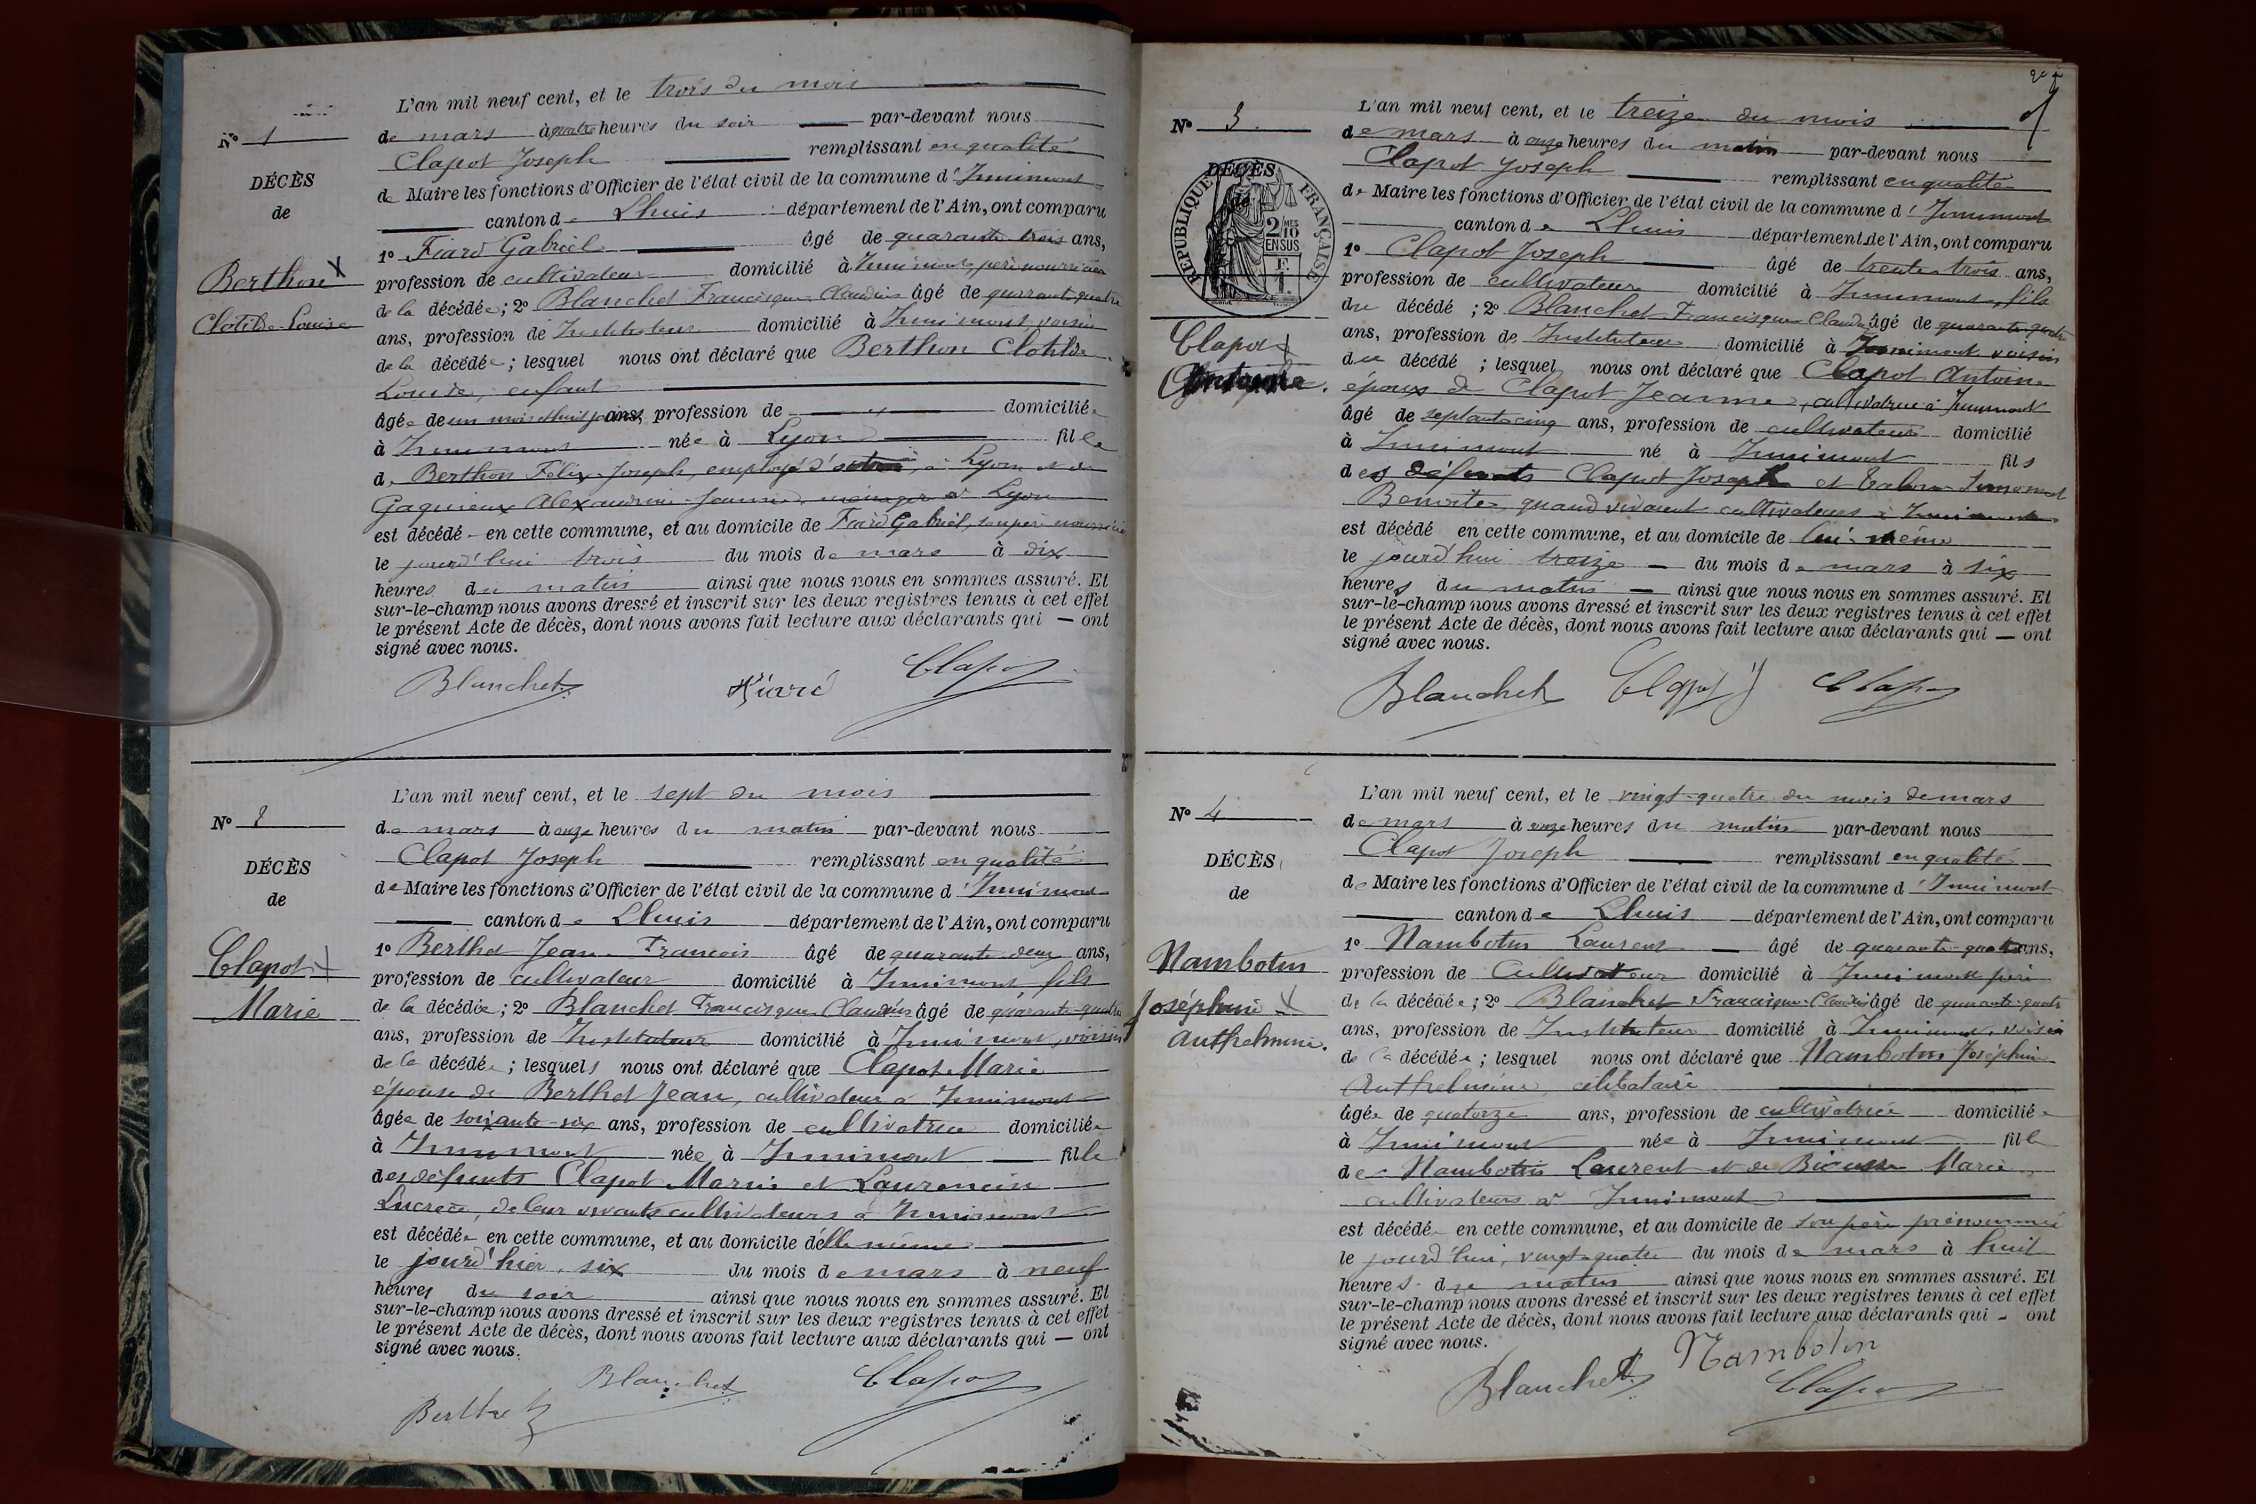 N° 1
DÉCÈS
de
Berthon X
Clotilde Louise
L'an mil neuf cent, et le trois du mois
de mars à quatre heures du soir par-devant nous
Clapot Joseph remplissant en qualité
de Maire les fonctions d'Officier de l'état civil de la commune d'Innimont
canton de Lhuis département de l'Ain, ont comparu
1° Fiard Gabriel âgé de quarante trois ans,
profession de cultivateur domicilié à Innimont, père nourricier
de la décédée; 2° Blanchet Francisque Claudius âgé de quarante quatre
ans, profession de Instituteur domicilié à Innimont, voisin
de la décédée; lesquel nous ont déclaré que Berthon Clotilde
Louise, enfant
âgée de un mois et huit jours ans, profession de domiciliée
à Innimont née à Lyon fille
de Berthon Félix Joseph, employé d' à Lyon et de
Gagnieux Alexandrine Jeanne, ménagère à Lyon
est décédé en cette commune, et au domicile de Fiard Gabriel, son père nourricier
le jourd'hui trois du mois de mars à dix
heures du matin ainsi que nous nous en sommes assuré. Et
sur-le-champ nous avons dressé et inscrit sur les deux registres tenus à cet effet
le présent Acte de décès, dont nous avons fait lecture aux déclarants qui — ont
signé avec nous.
Blanchet Fiard Clapot
N° 2
DÉCÈS
de
Clapot X
Marie
L'an mil neuf cent, et le sept du mois
de mars à onze heures du matin par-devant nous
Clapot Joseph remplissant en qualité
de Maire les fonctions d'Officier de l'état civil de la commune d'Innimont
canton de Lhuis département de l'Ain, ont comparu
1° Berthet Jean François âgé de quarante deux ans,
profession de cultivateur domicilié à Innimont fils
de la décédée; 2° Blanchet Francisque Claudius âgé de quarante quatre
ans, profession de Instituteur domicilié à Innimont, voisin
de la décédée; lesquels nous ont déclaré que Clapot Marie
épouse de Berthet Jean, cultivateur à Innimont
âgée de soixante-six ans, profession de cultivatrice domiciliée
à Innimont née à Innimont fille
des défunts Clapot Marin et Laurencin
Lucrèce, de leur vivants cultivateurs à Innimont
est décédée en cette commune, et au domicile d'elle même
le jourd'hier, six du mois de mars à neuf
heures du soir ainsi que nous nous en sommes assuré. Et
sur-le-champ nous avons dressé et inscrit sur les deux registres tenus à cet effet
le présent Acte de décès, dont nous avons fait lecture aux déclarants qui — ont
signé avec nous.
Berthet Blanchet Clapot
N° 3
DÉCÈS
de
RÉPUBLIQUE FRANÇAISE
2/10 EN SUS
Clapot X
Antoine.
L'an mil neuf cent, et le treize du mois
de mars à onze heures du matin par-devant nous
Clapot Joseph remplissant en qualité
de Maire les fonctions d'Officier de l'état civil de la commune d'Innimont
canton de Lhuis département de l'Ain, ont comparu
1° Clapot Joseph âgé de trente trois ans,
profession de cultivateur domicilié à Innimont, fils
du décédé; 2° Blanchet Francisque Claudius âgé de quarante quatre
ans, profession de Instituteur domicilié à Innimont voisin
du décédé; lesquel nous ont déclaré que Clapot Antoine
époux de Clapot Jeanne, cultivatrice à Innimont
âgé de septante cinq ans, profession de cultivateur domicilié
à Innimont né à Innimont fils
des défunts Clapot Joseph et
Benoite, quand vivaient cultivateurs à Innimont
est décédé en cette commune, et au domicile de lui-même
le jourd'hui treize — du mois de mars à six
heures du matin — ainsi que nous nous en sommes assuré. Et
sur-le-champ nous avons dressé et inscrit sur les deux registres tenus à cet effet
le présent Acte de décès, dont nous avons fait lecture aux déclarants qui — ont
signé avec nous.
Blanchet Clapot J Clapot
N° 4
DÉCÈS
de
Nambotin
Joséphine X
Anthelmine.
L'an mil neuf cent, et le vingt-quatre du mois de mars
de mars à onze heures du matin par-devant nous
Clapot Joseph remplissant en qualité
de Maire les fonctions d'Officier de l'état civil de la commune d'Innimont
canton de Lhuis département de l'Ain, ont comparu
1° Nambotin Laurent âgé de quarante-quatre ans,
profession de Cultivateur domicilié à Innimont père
de la décédée; 2° Blanchet Francisque Claudius âgé de quarante-quatre
ans, profession de Instituteur domicilié à Innimont, voisin
de la décédée; lesquel nous ont déclaré que Nambotin Joséphine
Anthelmine, célibataire
âgée de quatorze ans, profession de cultivatrice domiciliée
à Innimont née à Innimont fille
de Nambotin Laurent et de Marie
cultivateurs à Innimont
est décédé en cette commune, et au domicile de son père prénommé
le jourd'hui, vingt-quatre du mois de mars à huit
heures du matin ainsi que nous nous en sommes assuré. Et
sur-le-champ nous avons dressé et inscrit sur les deux registres tenus à cet effet
le présent Acte de décès, dont nous avons fait lecture aux déclarants qui - ont
signé avec nous.
Blanchet Nambotin Clapot